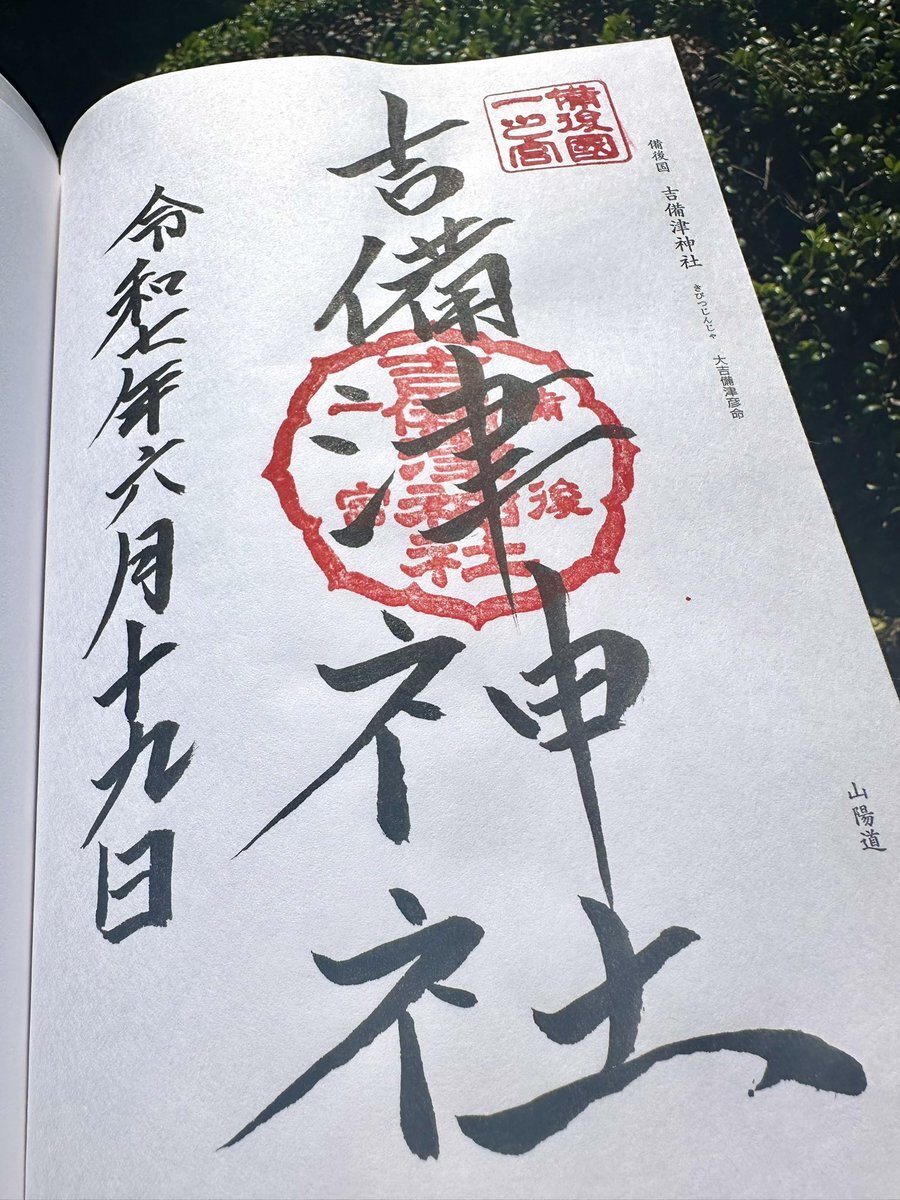 備後國
一之宮
備後国 吉備津神社 きびつじんじゃ 大吉備津彦命
山陽道
吉備津神社
備後
吉備津神社
一宮
令和七年六月十九日